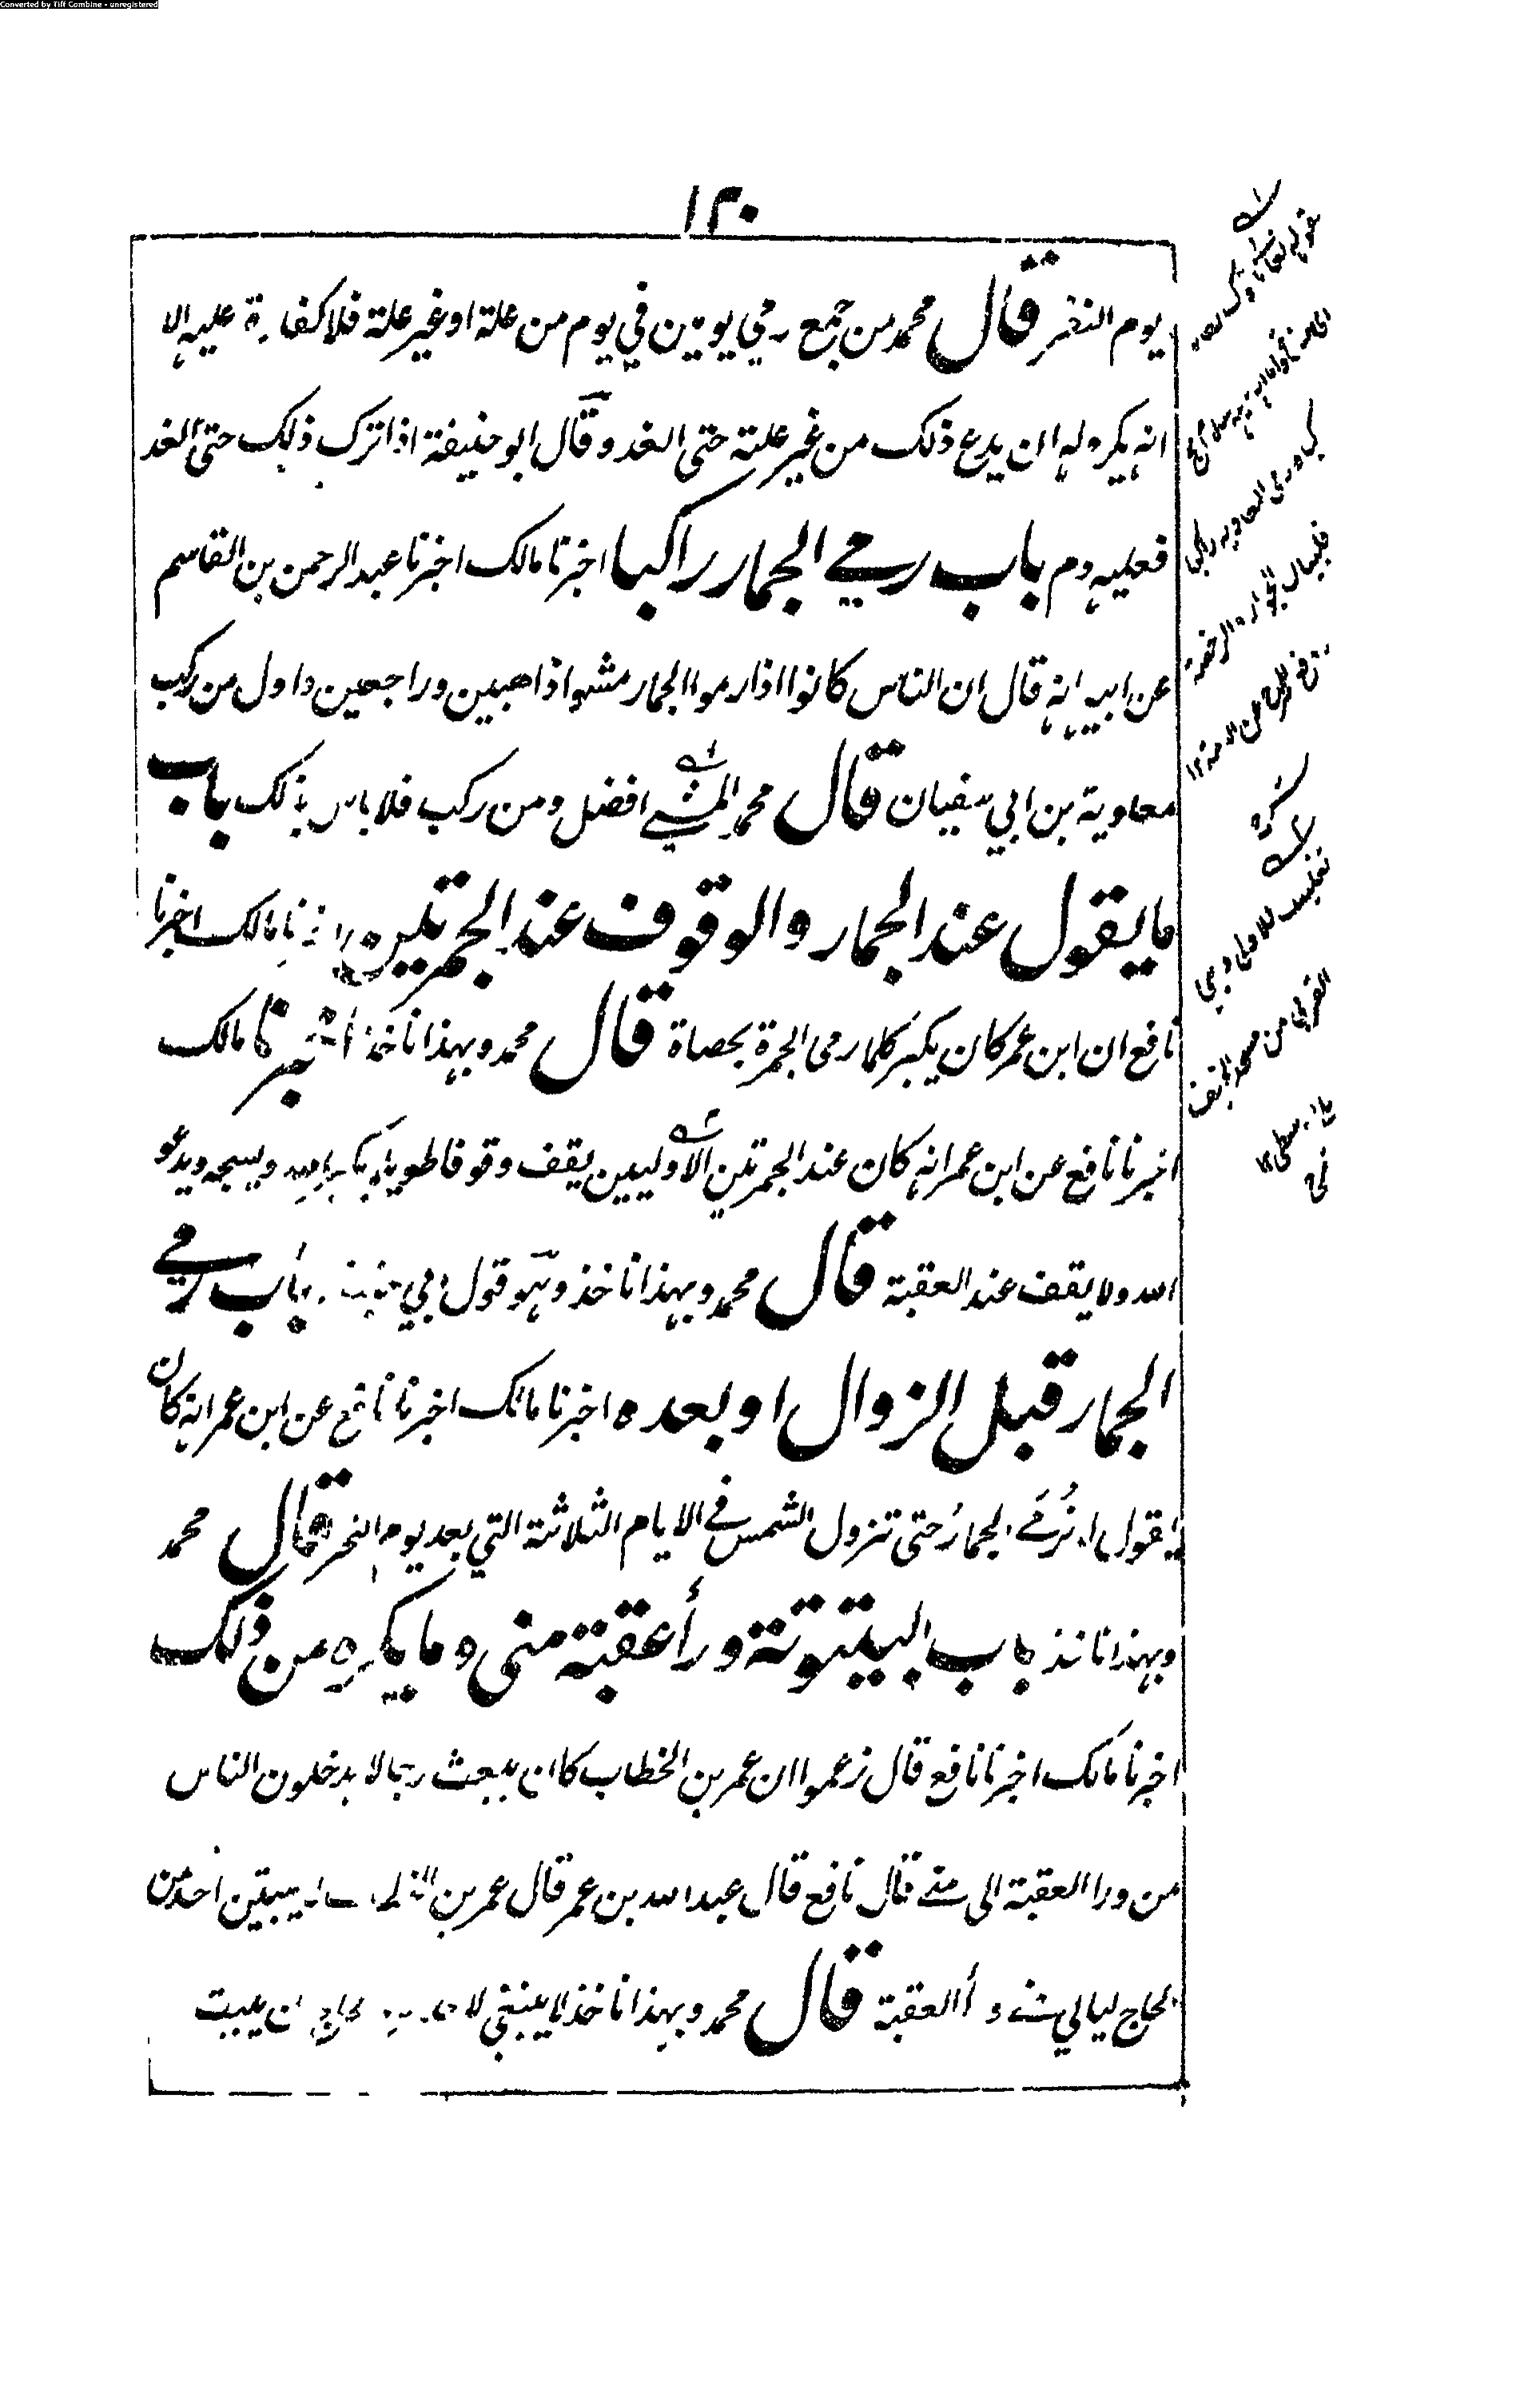 Converted by Tiff Combine - unregistered
١٢٠
يوم النفر قال محمد من جمع رمي يومين في يوم من علة او غير علة فلا كفارة عليه الا
انه يكره له ان يدع ذلك من غير علة حتى الغد وقال ابو حنيفة اذا ترك ذلك حتى الغد
فعليه دم باب رمي الجمار راكبا اخبرنا مالك اخبرنا عبد الرحمن بن القاسم
عن ابيه انه قال ان الناس كانوا اذا رموا الجمار مشوا ذاهبين وراجعين واول من ركب
معاوية بن ابي سفيان قال محمد المشي افضل ومن ركب فلا باس بذلك باب
ما يقول عند الجمار والوقوف عند الجمرتين اخبرنا مالك اخبرنا
نافع ان ابن عمر كان يكبر كلما رمى الجمرة بحصاة قال محمد وبهذا ناخذ اخبرنا مالك
اخبرنا نافع عن ابن عمر انه كان عند الجمرتين الاوليين يقف وقوفا طويلا يكبر الله ويسبحه ويدعو
الله ولا يقف عند العقبة قال محمد وبهذا ناخذ وهو قول ابي حنيفة باب رمي
الجمار قبل الزوال او بعده اخبرنا مالك اخبرنا نافع عن ابن عمر انه كان
يقول لا ترمى الجمار حتى تزول الشمس في الايام الثلاثة التي بعد يوم النحر قال محمد
وبهذا ناخذ باب البيتوتة ورأ عقبة منى وما يكره من ذلك
اخبرنا مالك اخبرنا نافع قال زعموا ان عمر بن الخطاب كان يبعث رجالا يدخلون الناس
من ورا العقبة الى منى قال نافع قال عبد الله بن عمر قال عمر بن الخطاب لا يبيتن احد من
الحاج ليالي منى ورأ العقبة قال محمد وبهذا ناخذ لا ينبغي لاحد من الحاج ان يبيت